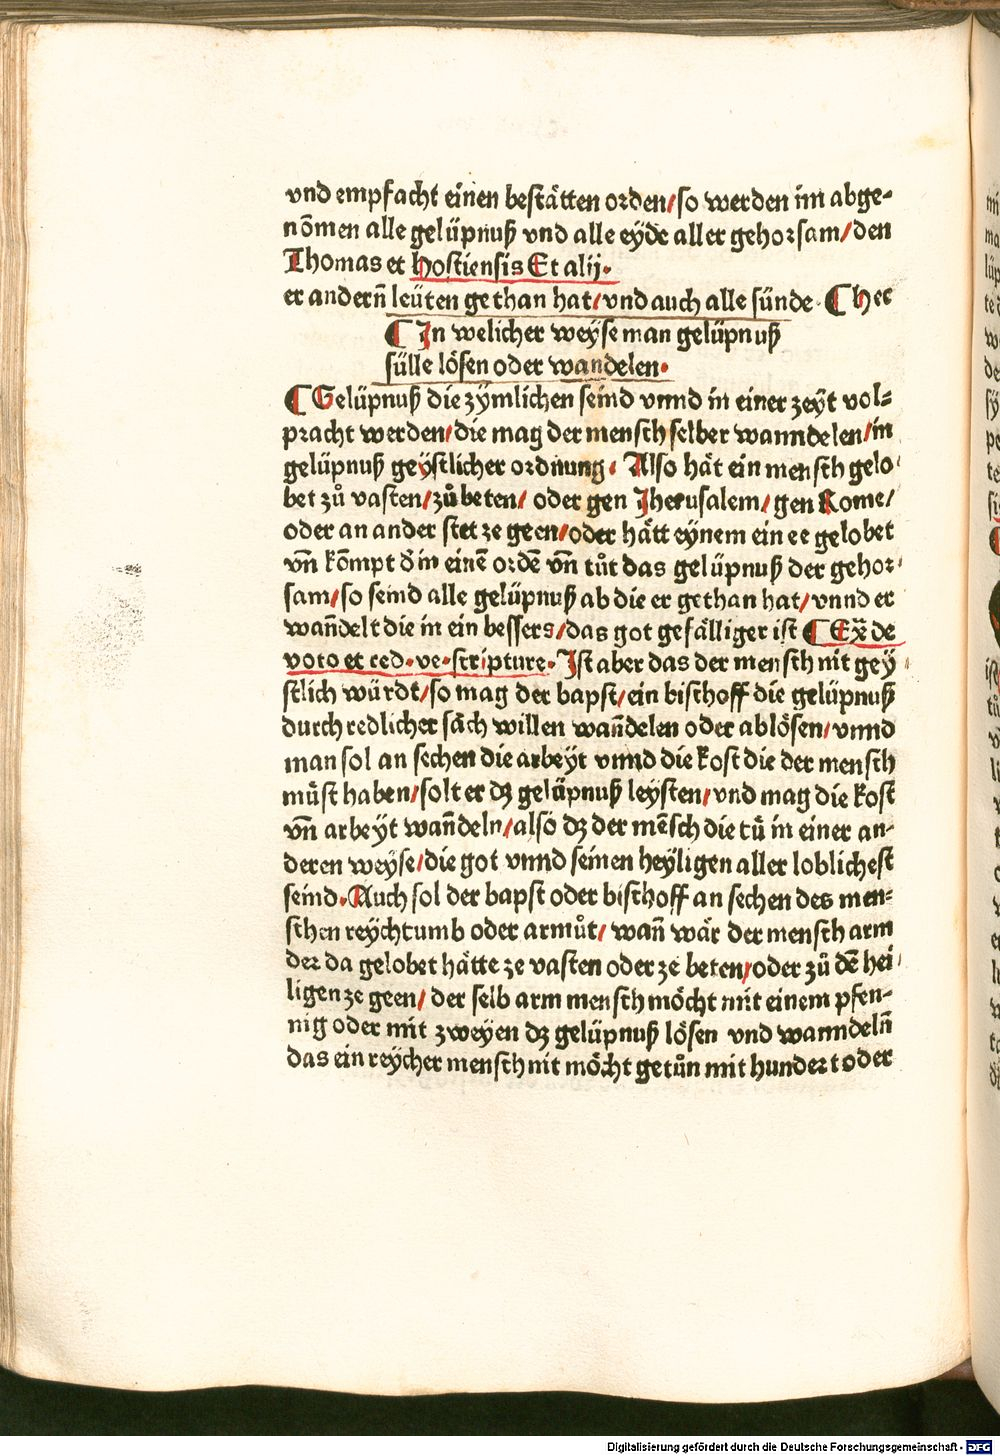 vnd empfacht einen bestätten orden/so werden im abge-
nōmen alle gelüpnuß vnd alle eyde aller gehorsam/den
Thomas et hostiensis Et alij.
er andern̄ leüten gethan hat/vnd auch alle sünde. ¶ hec
¶ In welicher weyse man gelüpnuß
sülle lösen oder wandelen.
¶ Gelüpnuß die zymlichen seind vnnd in einer zeyt vol-
pracht werden/die mag der mensch selber wanndelen/in
gelüpnuß geystlicher ordnung. Also hät ein mensch gelo-
bet zů vasten/zů beten/ oder gen Jherusalem/gen Rome/
oder an ander stet ze geen/oder hätt eynem ein ee gelobet
vn̄ kōmpt d̄ in einē ordē vn̄ tůt das gelüpnuß der gehor-
sam/so seind alle gelüpnuß ab die er gethan hat/vnnd er
wan̄delt die in ein bessers/das got gefälliger ist ¶ Ex̄ de
voto et red.ve.scripture. Ist aber das der mensch nit gey-
stlich würdt/so mag der bapst/ein bischoff die gelüpnuß
durch redlicher sach willen wan̄delen oder ablösen/vnnd
man sol an sechen die arbeyt vnnd die kost die der mensch
můst haben/solt er dz gelüpnuß leysten/vnd mag die kost
vn̄ arbeyt wan̄deln/also dz der mēsch die tů in einer an-
deren weyse/die got vnnd seinen heyligen aller loblichest
seind. Auch sol der bapst oder bischoff an sechen des men-
schen reychtumb oder armůt/ wan̄ wär der mensch arm
der da gelobet hätte ze vasten oder ze beten/oder zů dē hei-
ligen ze geen/ der selb arm mensch möcht mit einem pfen-
nig oder mit zweyen dz gelüpnuß lösen vnd wanndeln̄
das ein reycher mensch nit möcht getůn mit hundert oder
Digitalisierung gefördert durch die Deutsche Forschungsgemeinschaft - DFG